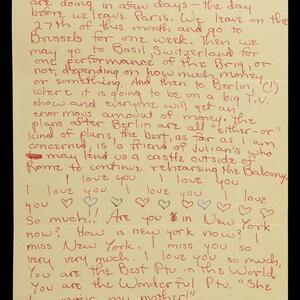 are doing in a few days - the day
before we leave Paris. We leave on the
27th of this month and go to
Brussels for one week. Then we
may go to Basil, Switzerland for
one performance of the Brig, or
not, depending on how much money
or something. And then to Berlin (!)
where it is going to be on a big T.V.
show and everyone will get an
enormous amount of money. The
plans after Berlin are all "either-or"
kind of plans, the best, as far as I am
concerned, is a friend of Julian's who
may lend us a castle outside of
Rome to continue rehearsing the Balcony.
I love you I love you
I love you I love you I love
you ♡ ♡ ♡ ♡ ♡ ♡ ♡
So much!! Are you in New York
now? How is new york now? I
miss New York. I miss you so
very very much. I love you so much,
You are the Best Ptv in the World
You are the Wonderful Ptv. "She
my mother!"